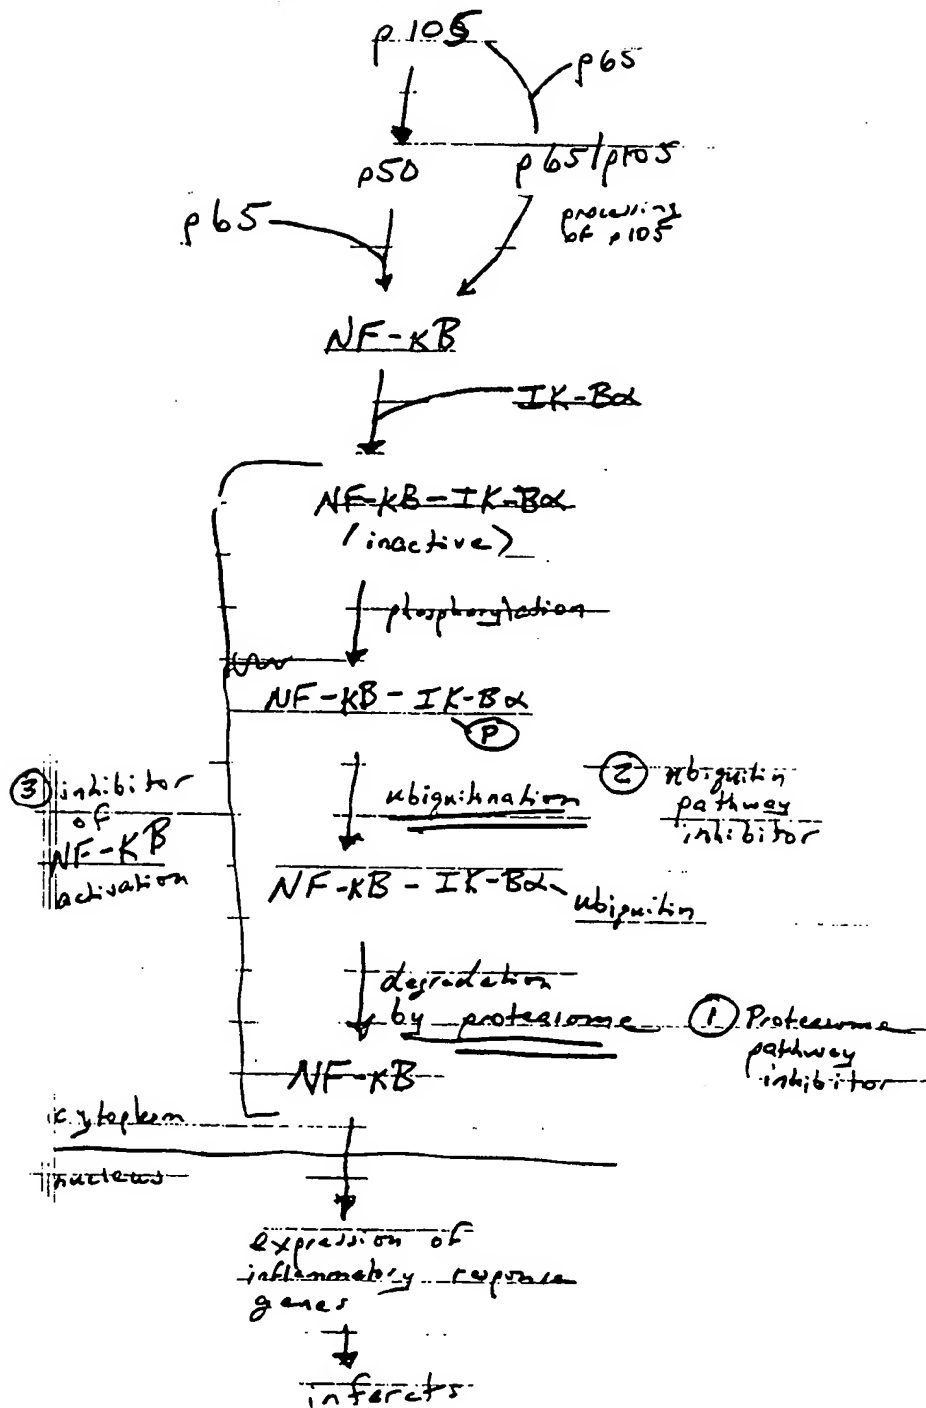 p105
p65
p50
p65/p105
processing
of p105
p65
NF-κB
IK-Bα
NF-κB-IK-Bα
(inactive)
phosphorylation
NF-κB-IK-Bα
P
ubiquitination
② ubiquitin
pathway
inhibitor
③ inhibitor
of
NF-κB
activation
NF-κB-IK-Bα-
ubiquitin
degradation
by proteasome
① Proteasome
pathway
inhibitor
NF-κB
cytoplasm
nucleus
expression of
inflammatory response
genes
infarcts